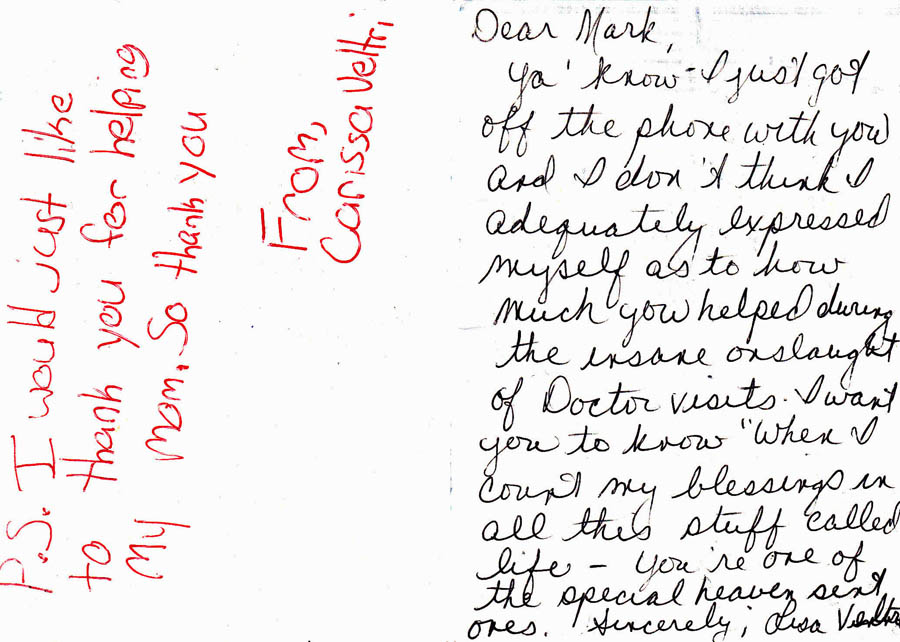 Dear Mark,
Ya' know - I just got
off the phone with you
and I don't think I
adequately expressed
myself as to how
much you helped during
the insane onslaught
of Doctor visits. I want
you to know "When I
count my blessings in
all this stuff called
life - you're one of
the special heaven sent
ones. Sincerely, Lisa Veltri
P.S. I would just like
to thank you for helping
My mom. So thank you
From,
Carissa Veltri